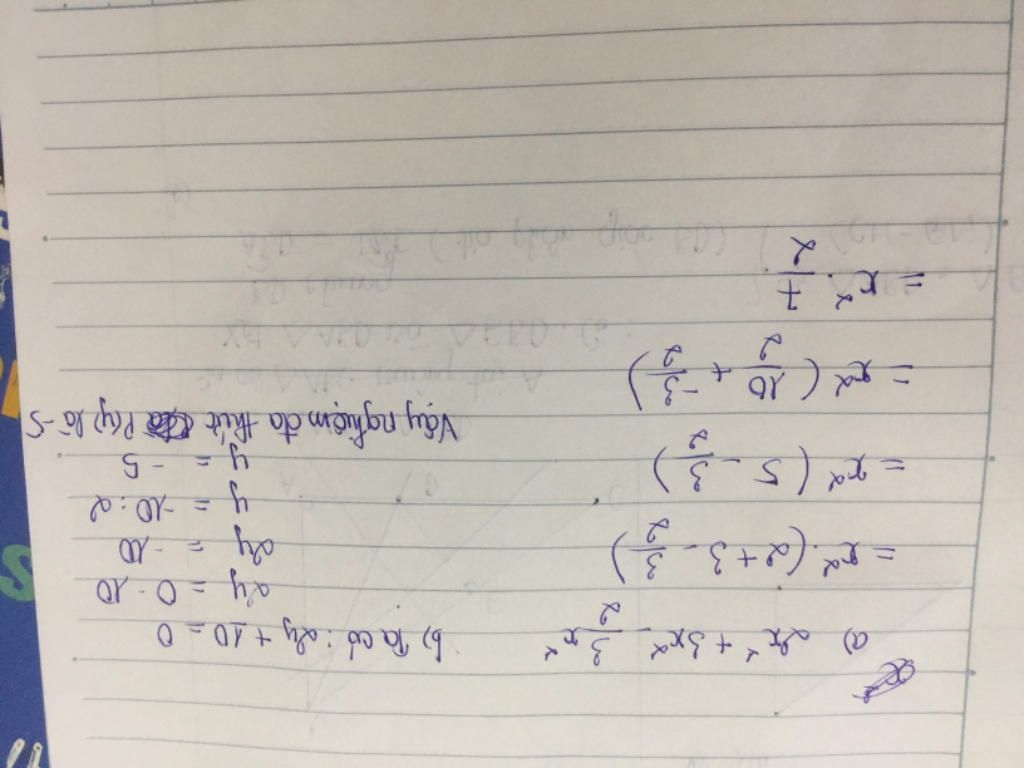 a) 2x² + 3x² - 3/2 x²
= x². (2+3 - 3/2)
= x² (5 - 3/2)
= x² (10/2 + -3/2)
= x². 7/2
b) Ta có: 2y + 10 = 0
2y = 0 - 10
2y = -10
y = -10 : 2
y = -5
Vậy nghiệm đa thức P(y) là -5